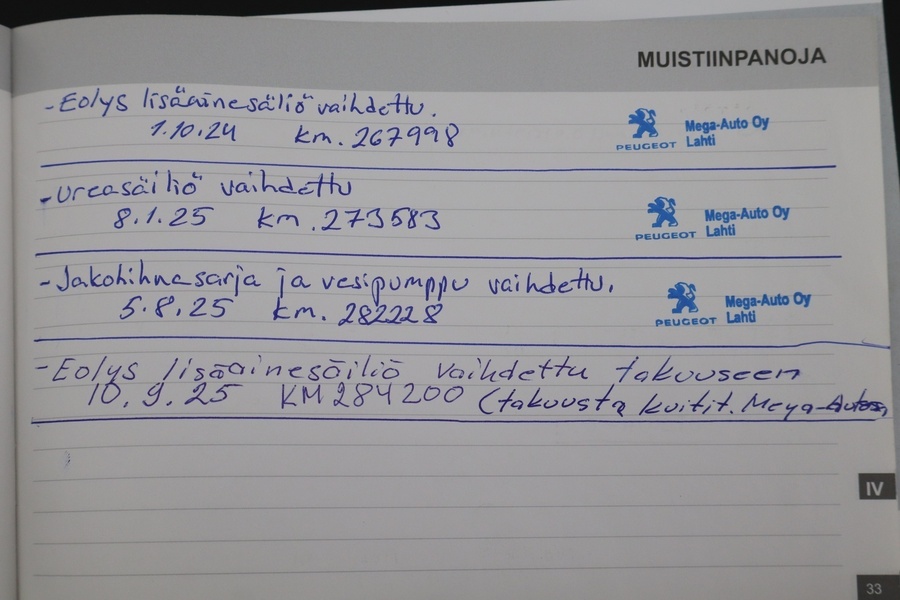 MUISTIINPANOJA
- Eolys lisäainesäliö vaihdettu.
1.10.24 km. 267998
PEUGEOT Mega-Auto Oy
Lahti
- Ureasäiliö vaihdettu
8.1.25 km. 273583
PEUGEOT Mega-Auto Oy
Lahti
- Jakohihnasarja ja vesipumppu vaihdettu.
5.8.25 km. 282228
PEUGEOT Mega-Auto Oy
Lahti
- Eolys lisäainesäiliö vaihdettu takuuseen
10.9.25 KM 284200 (takuusta kuitit.
IV
33